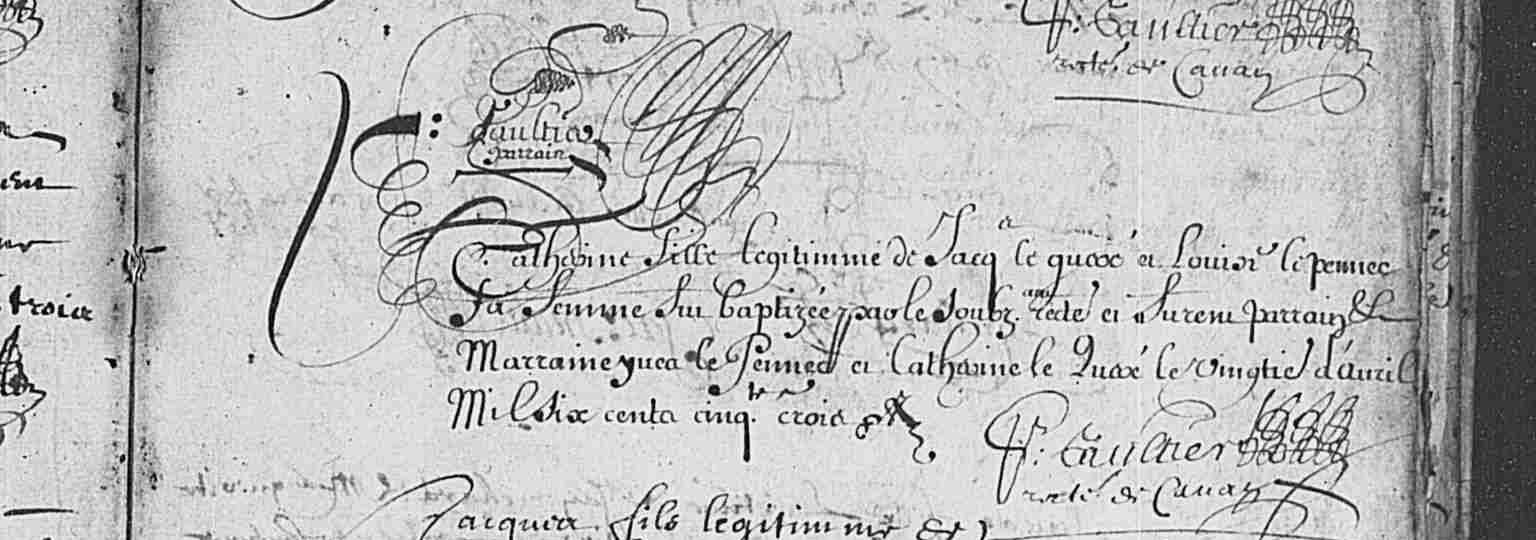 F. Gaultier
rectr. de Cavan
Gaultier
parrain
Catherine fille legitimme de Jacq. le quere et Louise le pennec
sa femme fut baptizée par le soubz. recte. et furent parrain &
Marraine yves le Pennec et Catherine le Quere le vingties d'avril
Mil six cents cinqte. trois
F. Gaultier
recte. de Cavan
Jacques fils legitimme de
trois